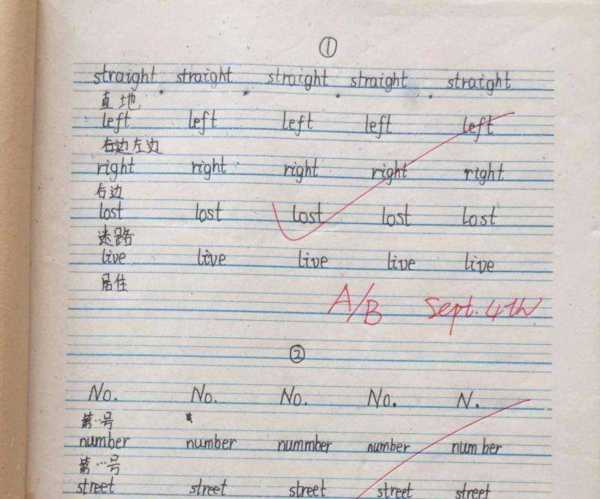 ①
straight straight straight straight straight
直地
left left left left left
右边左边
right right right right right
右边
lost lost lost lost lost
迷路
live live live live live
居住
A/B Sept. 4th
②
No. No. No. No. N.
第…号
number number nummber number number
第…号
street street street street street